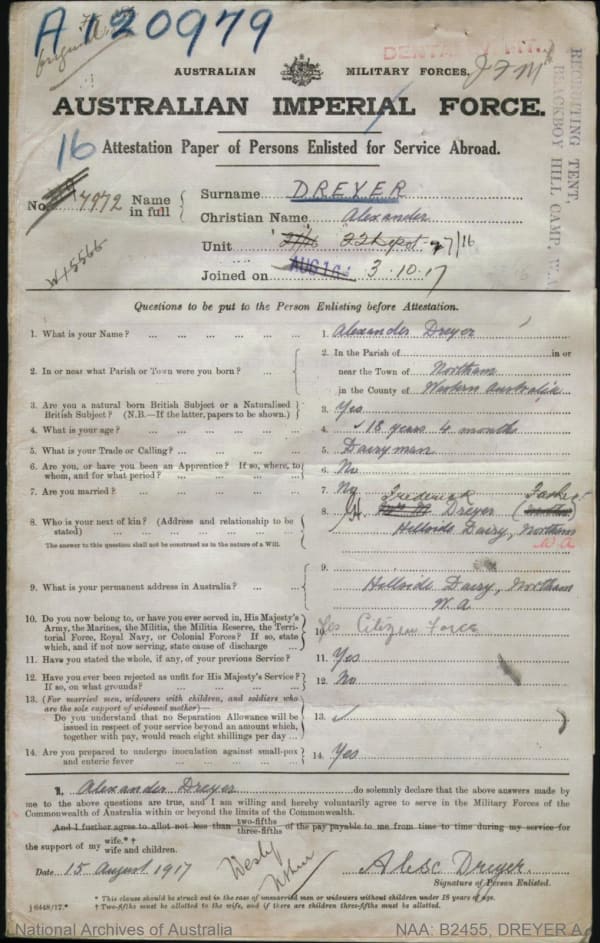 A 120979
DENTAL
J F M
RECRUITING TENT,
BLACKBOY HILL CAMP, W.A.
AUSTRALIAN MILITARY FORCES.
AUSTRALIAN IMPERIAL FORCE.
16 Attestation Paper of Persons Enlisted for Service Abroad.
No. 7972 Name in full
Surname DREYER
Christian Name Alexander
Unit 22 Depot 27/16
Joined on AUG 3.10.17
Questions to be put to the Person Enlisting before Attestation.
1. What is your Name? 1. Alexander Dreyer
2. In or near what Parish or Town were you born? 2. In the Parish of in or
near the Town of Northam
in the County of Western Australia
3. Are you a natural born British Subject or a Naturalised
British Subject? (N.B.—If the latter, papers to be shown.) 3. Yes
4. What is your age? 4. 18 years 4 months
5. What is your Trade or Calling? 5. Dairyman
6. Are you, or have you been an Apprentice? If so, where, to
whom, and for what period? 6. No
7. Are you married? 7. No
8. Who is your next of kin? (Address and relationship to be
stated) 8. Frederick Dreyer (Father)
Hillside Dairy, Northam
W.A
The answer to this question shall not be construed as in the nature of a Will.
9. What is your permanent address in Australia? 9. Hillside Dairy, Northam
W.A
10. Do you now belong to, or have you ever served in, His Majesty's
Army, the Marines, the Militia, the Militia Reserve, the Terri-
torial Force, Royal Navy, or Colonial Forces? If so, state
which, and if not now serving, state cause of discharge 10. Yes Citizen Force
11. Have you stated the whole, if any, of your previous Service? 11. Yes
12. Have you ever been rejected as unfit for His Majesty's Service?
If so, on what grounds? 12. No
13. (For married men, widowers with children, and soldiers who
are the sole support of widowed mother)—
Do you understand that no Separation Allowance will be
issued in respect of your service beyond an amount which,
together with pay, would reach eight shillings per day 13.
14. Are you prepared to undergo inoculation against small-pox
and enteric fever 14. Yes
I, Alexander Dreyer do solemnly declare that the above answers made by
me to the above questions are true, and I am willing and hereby voluntarily agree to serve in the Military Forces of the
Commonwealth of Australia within or beyond the limits of the Commonwealth.
And I further agree to allot not less than two-fifths three-fifths of the pay payable to me from time to time during my service for
the support of my wife.*† wife and children.
Date 15 August 1917
Alesc Dreyer.
Signature of Person Enlisted.
* This clause should be struck out in the case of unmarried men or widowers without children under 18 years of age.
† Two-fifths must be allotted to the wife, and if there are children three-fifths must be allotted.
National Archives of Australia
NAA: B2455, DREYER A